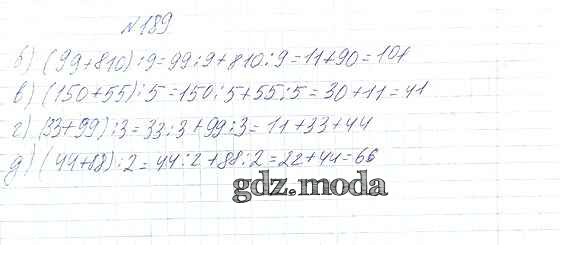 №189
б) (99+810):9=99:9+810:9=11+90=101
в) (150+55):5=150:5+55:5=30+11=41
г) (33+99):3=33:3+99:3=11+33+44
д) (44+88):2=44:2+88:2=22+44=66
gdz.moda